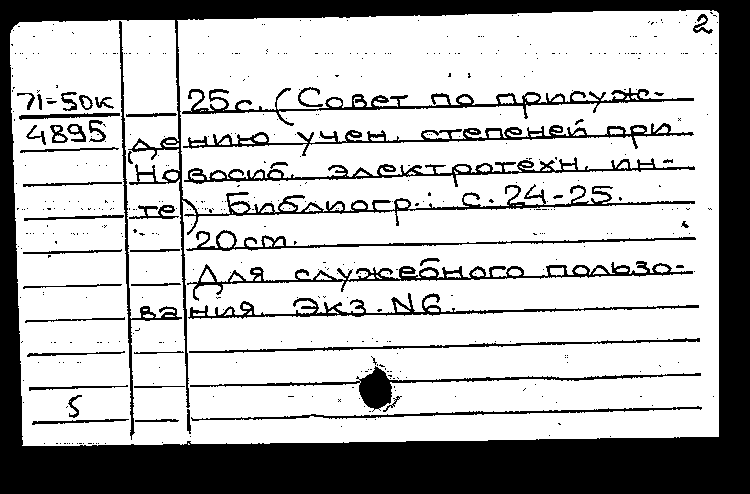 2
71-50к 25с. (Совет по присуж-
4895 дению учен. степеней при
Новосиб. электротехн. ин-
те). Библиогр.: с. 24-25.
20 cm.
Для служебного пользо-
вания. Экз. N6.
5